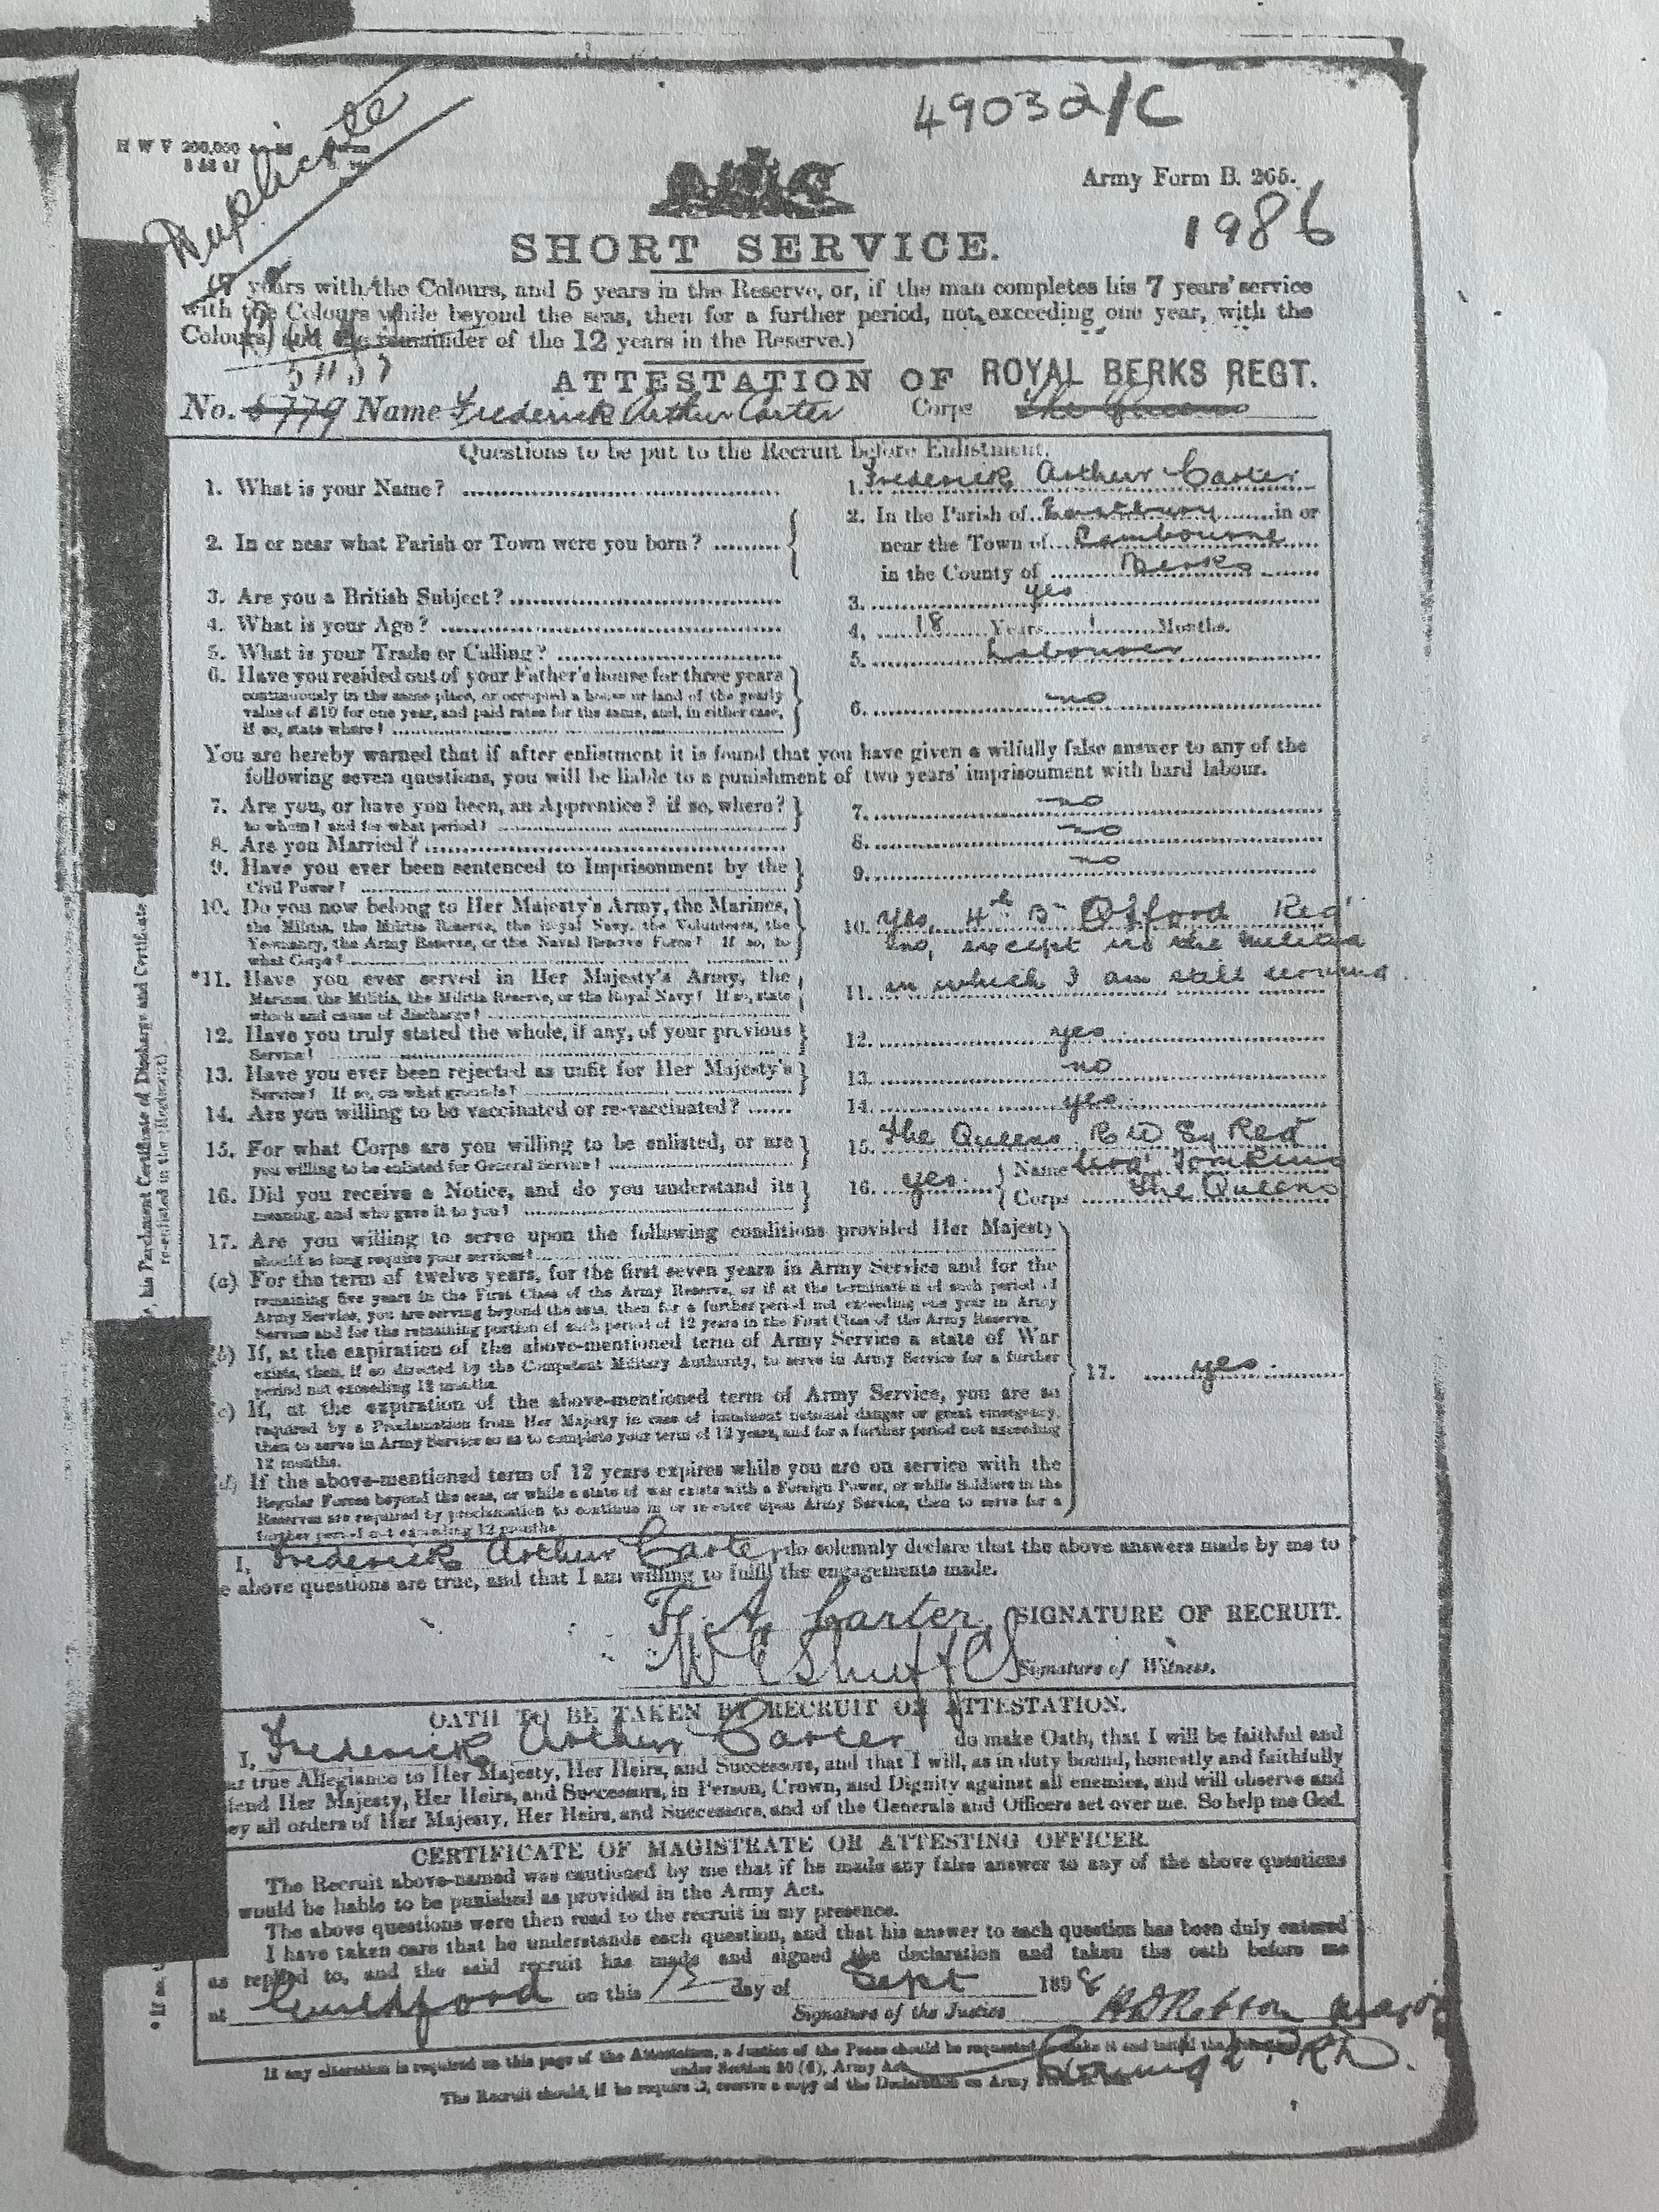 49032/C
Duplicate
H W V 200,000
Army Form B. 265.
1986
SHORT SERVICE.
years with the Colours, and 5 years in the Reserve, or, if the man completes his 7 years' service
with the Colours while beyond the seas, then for a further period, not exceeding one year, with the
Colours, and the remainder of the 12 years in the Reserve.)
ATTESTATION OF ROYAL BERKS REGT.
No. 5779 Name Frederick Arthur Carter Corps The Queens
Questions to be put to the Recruit before Enlistment.
1. What is your Name? 1. Frederick Arthur Carter
2. In or near what Parish or Town were you born? 2. In the Parish of Eastbury in or
near the Town of Lambourne
in the County of Berks
3. Are you a British Subject? 3. yes
4. What is your Age? 4. 18 Years 1 Months.
5. What is your Trade or Calling? 5. Labourer
6. Have you resided out of your Father's house for three years
continuously in the same place, or occupied a house or land of the yearly
value of £10 for one year, and paid rates for the same, and, in either case,
if so, state where? 6. no
You are hereby warned that if after enlistment it is found that you have given a wilfully false answer to any of the
following seven questions, you will be liable to a punishment of two years' imprisonment with hard labour.
7. Are you, or have you been, an Apprentice? if so, where?
to whom? and for what period? 7. no
8. Are you Married? 8. no
9. Have you ever been sentenced to Imprisonment by the
Civil Power? 9. no
10. Do you now belong to Her Majesty's Army, the Marines,
the Militia, the Militia Reserve, the Royal Navy, the Volunteers, the
Yeomanry, the Army Reserve, or the Naval Reserve Force? If so, to
what Corps? 10. yes, 4th Bn Oxford Regt
*11. Have you ever served in Her Majesty's Army, the
Marines, the Militia, the Militia Reserve, or the Royal Navy? If so, state
which and cause of discharge? 11. no, except in the militia
in which I am still serving
12. Have you truly stated the whole, if any, of your previous
Service? 12. yes
13. Have you ever been rejected as unfit for Her Majesty's
Service? If so, on what grounds? 13. no
14. Are you willing to be vaccinated or re-vaccinated? 14. yes
15. For what Corps are you willing to be enlisted, or are
you willing to be enlisted for General Service? 15. The Queens R W Sy Regt
16. Did you receive a Notice, and do you understand its
meaning, and who gave it to you? 16. yes. Name Tomkins
Corps The Queens
17. Are you willing to serve upon the following conditions provided Her Majesty
should so long require your services?
(a) For the term of twelve years, for the first seven years in Army Service and for the
remaining five years in the First Class of the Army Reserve, or if at the termination of such period of
Army Service, you are serving beyond the seas, then for a further period not exceeding one year in Army
Service and for the remaining portion of such period of 12 years in the First Class of the Army Reserve.
(b) If, at the expiration of the above-mentioned term of Army Service a state of War
exists, then, if so directed by the Competent Military Authority, to serve in Army Service for a further
period not exceeding 12 months.
(c) If, at the expiration of the above-mentioned term of Army Service, you are so
required by a Proclamation from Her Majesty in case of imminent national danger or great emergency,
then to serve in Army Service so as to complete your term of 12 years, and for a further period not exceeding
12 months.
(d) If the above-mentioned term of 12 years expires while you are on service with the
Regular Forces beyond the seas, or while a state of war exists with a Foreign Power, or while Soldiers in the
Reserves are required by proclamation to continue in or re-enter upon Army Service, then to serve for a
further period not exceeding 12 months.
17. yes.
I, Frederick Arthur Carter, do solemnly declare that the above answers made by me to
e above questions are true, and that I am willing to fulfil the engagements made.
F. A. Carter, SIGNATURE OF RECRUIT.
Signature of Witness.
OATH TO BE TAKEN BY RECRUIT ON ATTESTATION.
I, Frederick Arthur Carter do make Oath, that I will be faithful and
ar true Allegiance to Her Majesty, Her Heirs, and Successors, and that I will, as in duty bound, honestly and faithfully
fend Her Majesty, Her Heirs, and Successors, in Person, Crown, and Dignity against all enemies, and will observe and
ey all orders of Her Majesty, Her Heirs, and Successors, and of the Generals and Officers set over me. So help me God.
CERTIFICATE OF MAGISTRATE OR ATTESTING OFFICER.
The Recruit above-named was cautioned by me that if he made any false answer to any of the above questions
would be liable to be punished as provided in the Army Act.
The above questions were then read to the recruit in my presence.
I have taken care that he understands each question, and that his answer to each question has been duly entered
as replied to, and the said recruit has made and signed the declaration and taken the oath before me
at Guildford on this day of Sept 1898
Signature of the Justice Major
If any alteration is required on this page of the Attestation, a Justice of the Peace should be requested to make it and initial the
under Section 80 (6), Army Act.
The Recruit should, if he require it, receive a copy of the Declaration on Army
his Parchment Certificate of Discharge and Certificate
re-enlisted in the (Regiment).